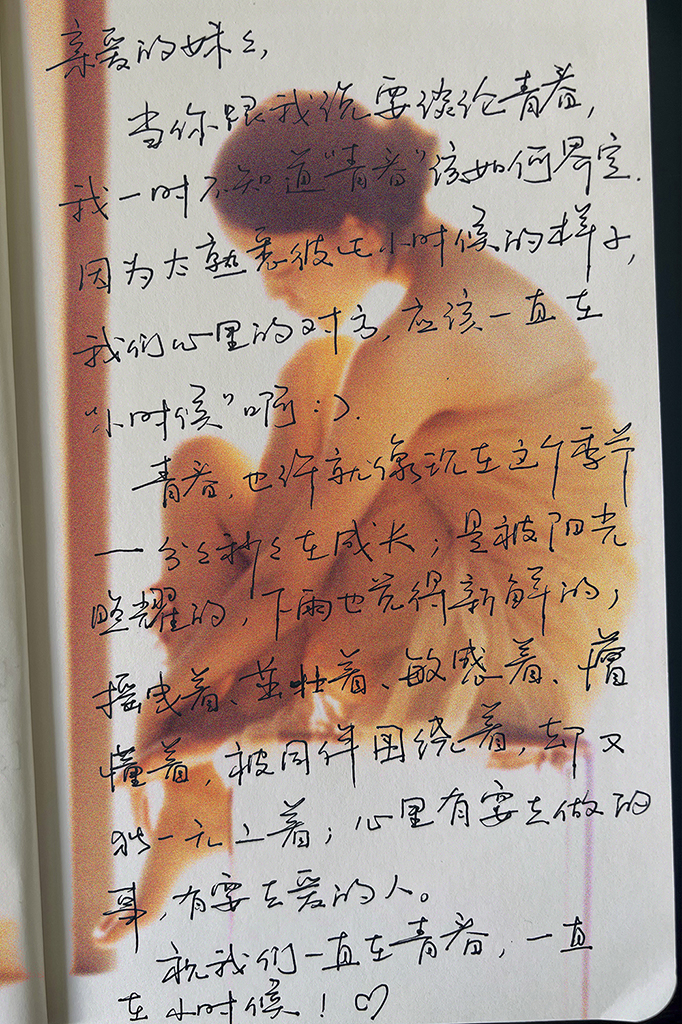 亲爱的妹々,
当你跟我说要谈论青春,
我一时不知道“青春”该如何界定.
因为太熟悉彼此小时候的样子,
我们心里的对方,应该一直在
“小时候”啊:).
青春,也许就像现在这个季节
一分々秒々在成长;是被阳光
照耀的,下雨也觉得新鲜的;
摇曳着、茁壮着、敏感着、懵
懂着,被同伴围绕着,却又
独一无二着;心里有要去做的
事,有要去爱的人。
祝我们一直在青春,一直
在小时候!♡